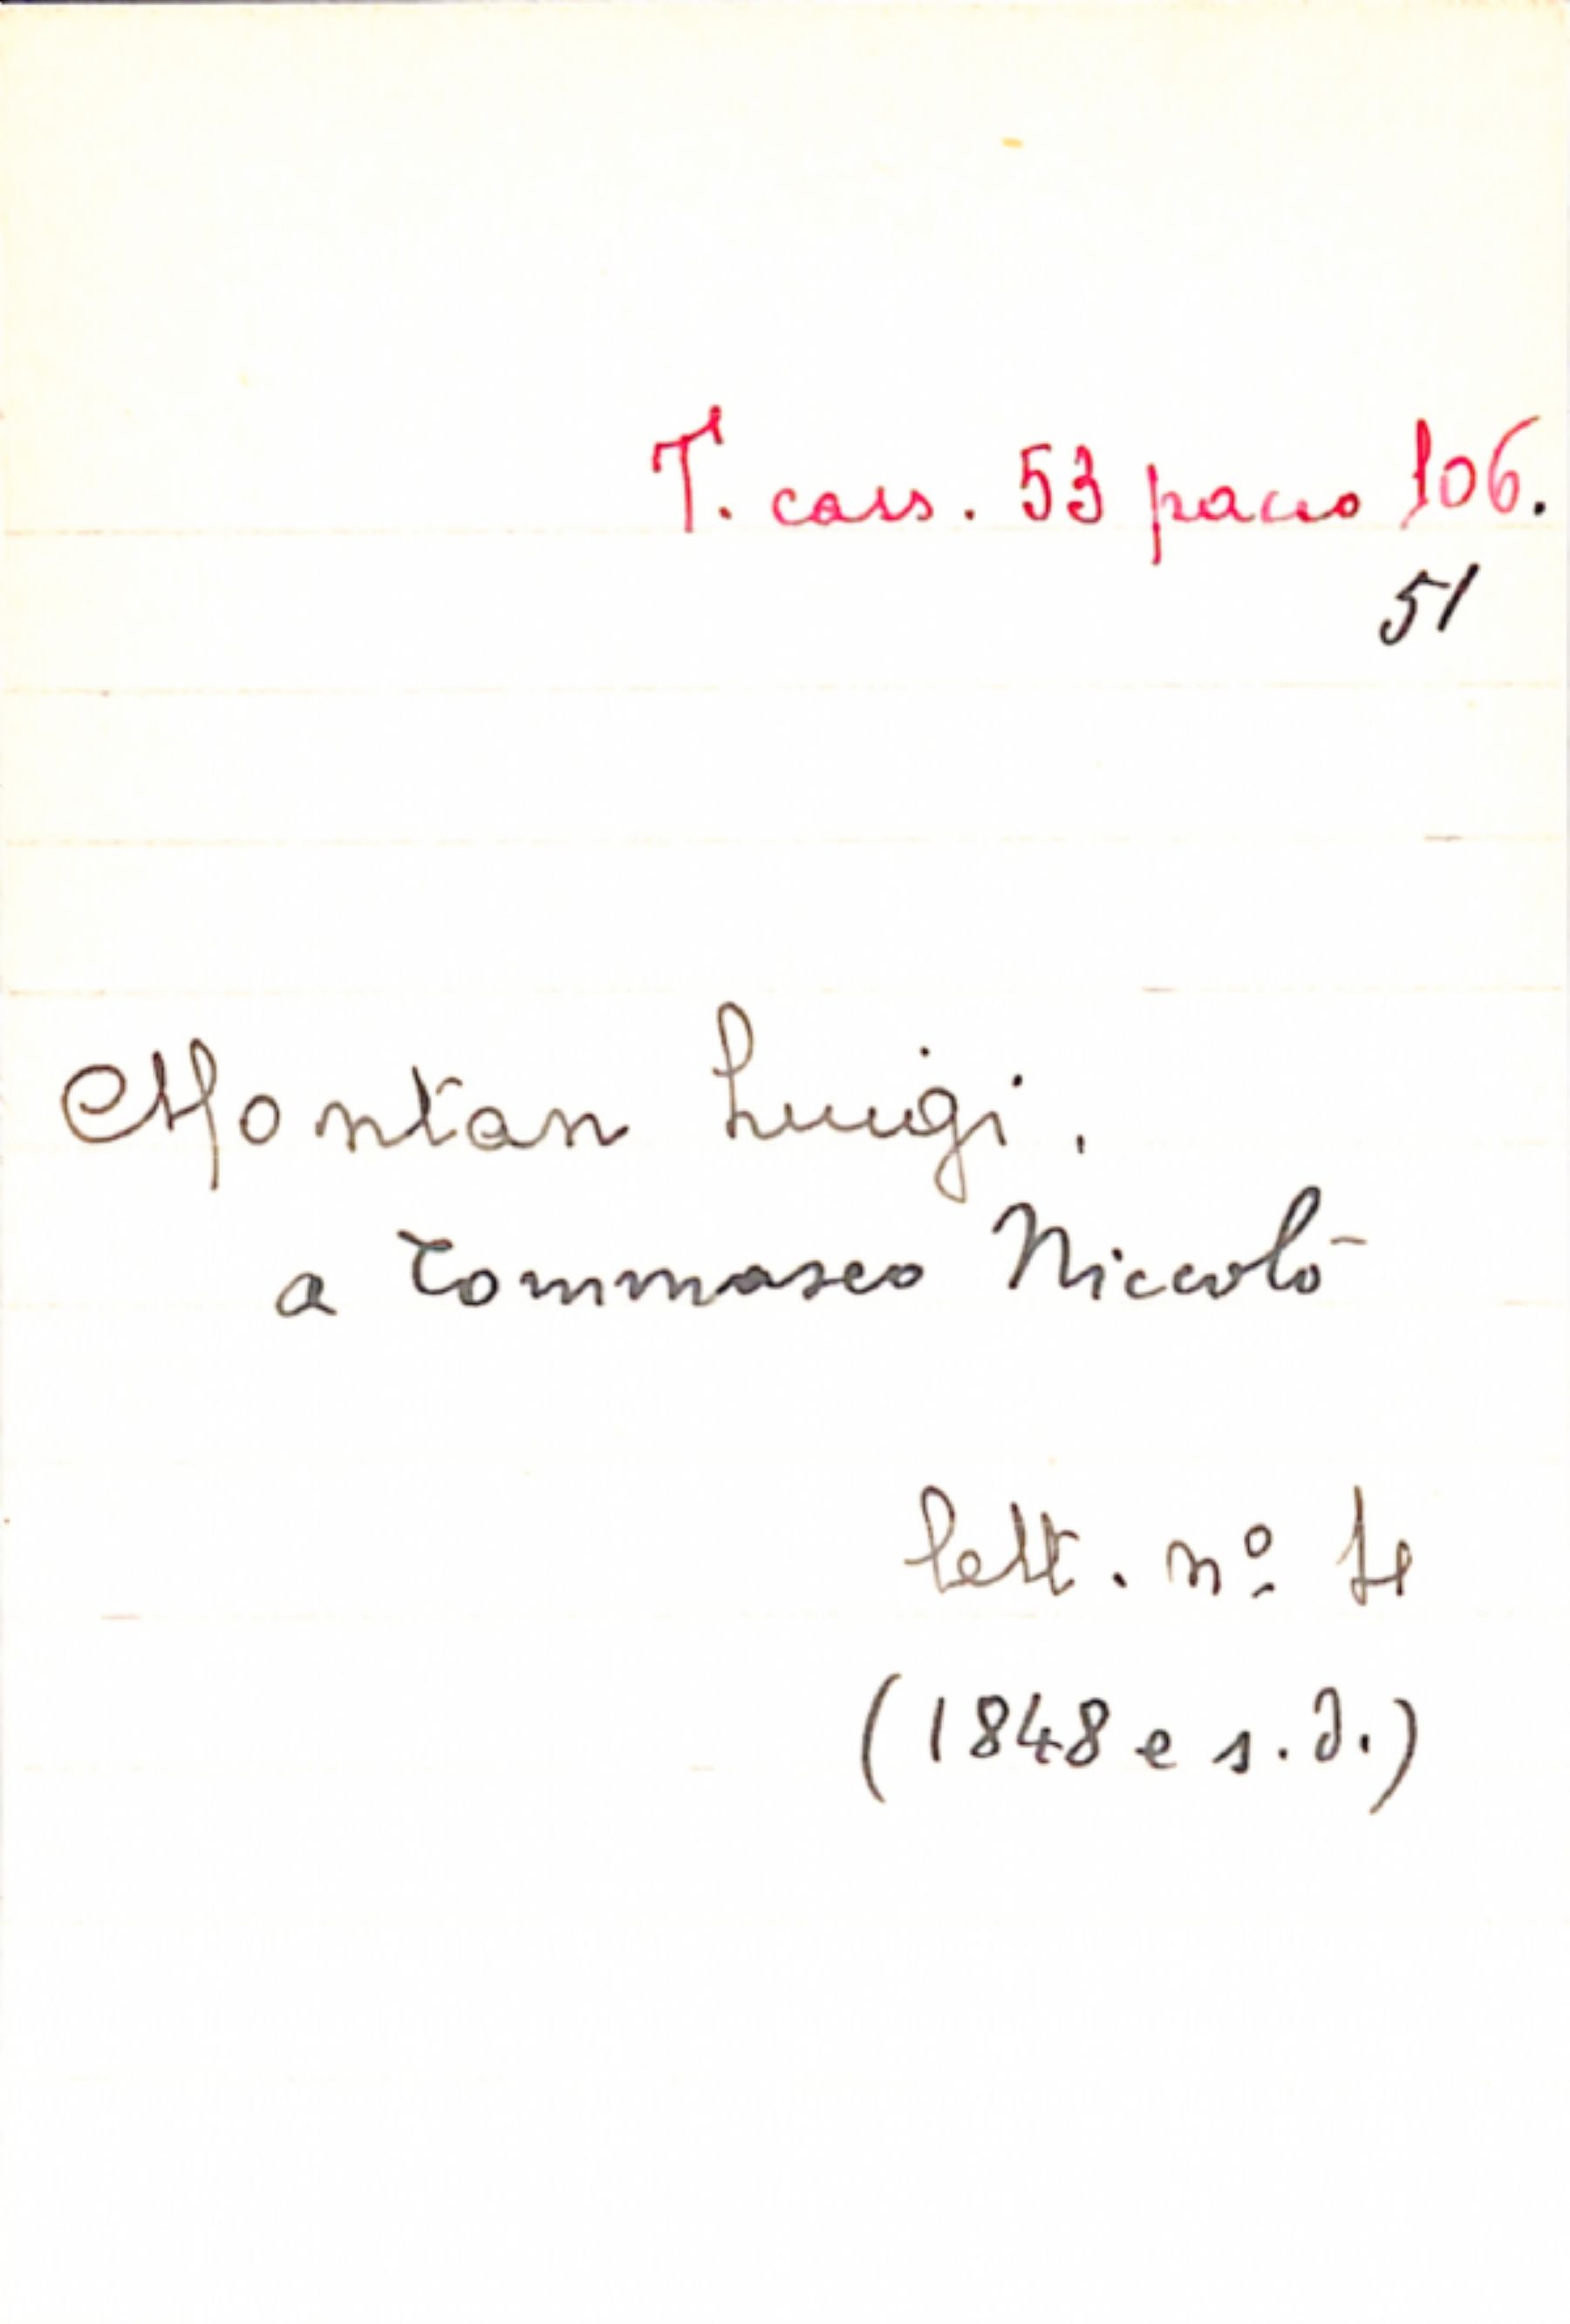 T. cass. 53 pacco 106.
51
Montan Luigi.
a Tommaseo Niccolò
lett. nº 4
(1848 e s.d.)